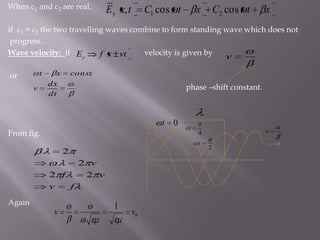 When c1 and c2 are real, Ẽy x,t = C1 cos ωt − βx + C2 cos ωt + βx
if c1 = c2 the two travelling waves combine to form standing wave which does not
progress.
Wave velocity: if Ey = f x ± vt velocity is given by v = ω/β
or ωt − βx = const.
v = dx/dt = ω/β
phase –shift constant.
λ
ωt = 0
ωt = π/4
ωt = π/2
v = ω/β
From fig.
βλ = 2π
⇒ ωλ = 2πv
⇒ 2πfλ = 2πv
⇒ v = fλ
Again
v = ω/β = ω/ω√εμ = 1/√εμ = v0